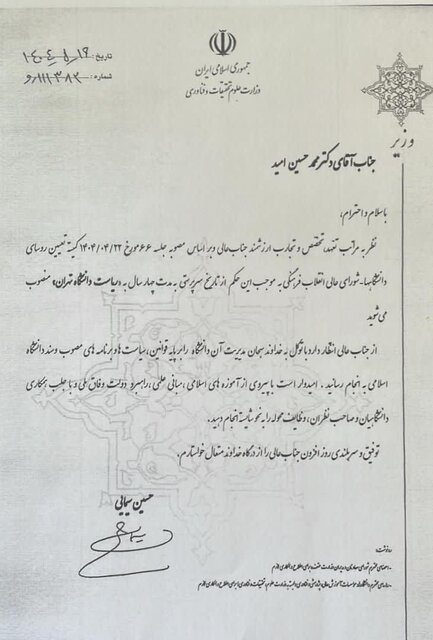 جمهوری اسلامی ایران
وزارت علوم تحقیقات و فناوری
تاریخ: ۱۴۰۴،۵،۱۹
شماره: ۱۱۱۳۸۲/و
وزیر
جناب آقای دکتر محمد حسین امید
با سلام و احترام،
نظر به مراتب تعهد، تخصص و تجارب ارزشمند جناب‌عالی و بر اساس مصوبه جلسه ۶۶ مورخ ۱۴۰۴/۰۴/۲۲ کمیته تعیین روسای
دانشگاه‌ها-شورای عالی انقلاب فرهنگی به موجب این حکم از تاریخ سرپرستی به مدت چهار سال به «ریاست دانشگاه تهران» منصوب
می‌شوید
از جناب عالی انتظار دارد با توکل به خداوند سبحان مدیریت آن دانشگاه را بر پایه قوانین، سیاست‌ها و برنامه های مصوب و سند دانشگاه
اسلامی به انجام رسانید. امیدوار است با پیروی از آموزه های اسلامی، مبانی علمی، راهبرد دولت وفاق ملی و با جلب همکاری
دانشگاهیان و صاحب نظران، وظایف محوله را به نحو شایسته انجام دهید.
توفیق و سربلندی روز افزون جناب عالی را از درگاه خداوند متعال خواستارم.
حسین سیمایی
رونوشت: